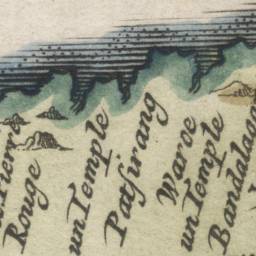 Pierre
Rouge
un Temple
Patsirang
Waroe
un Temple
Bandalaga